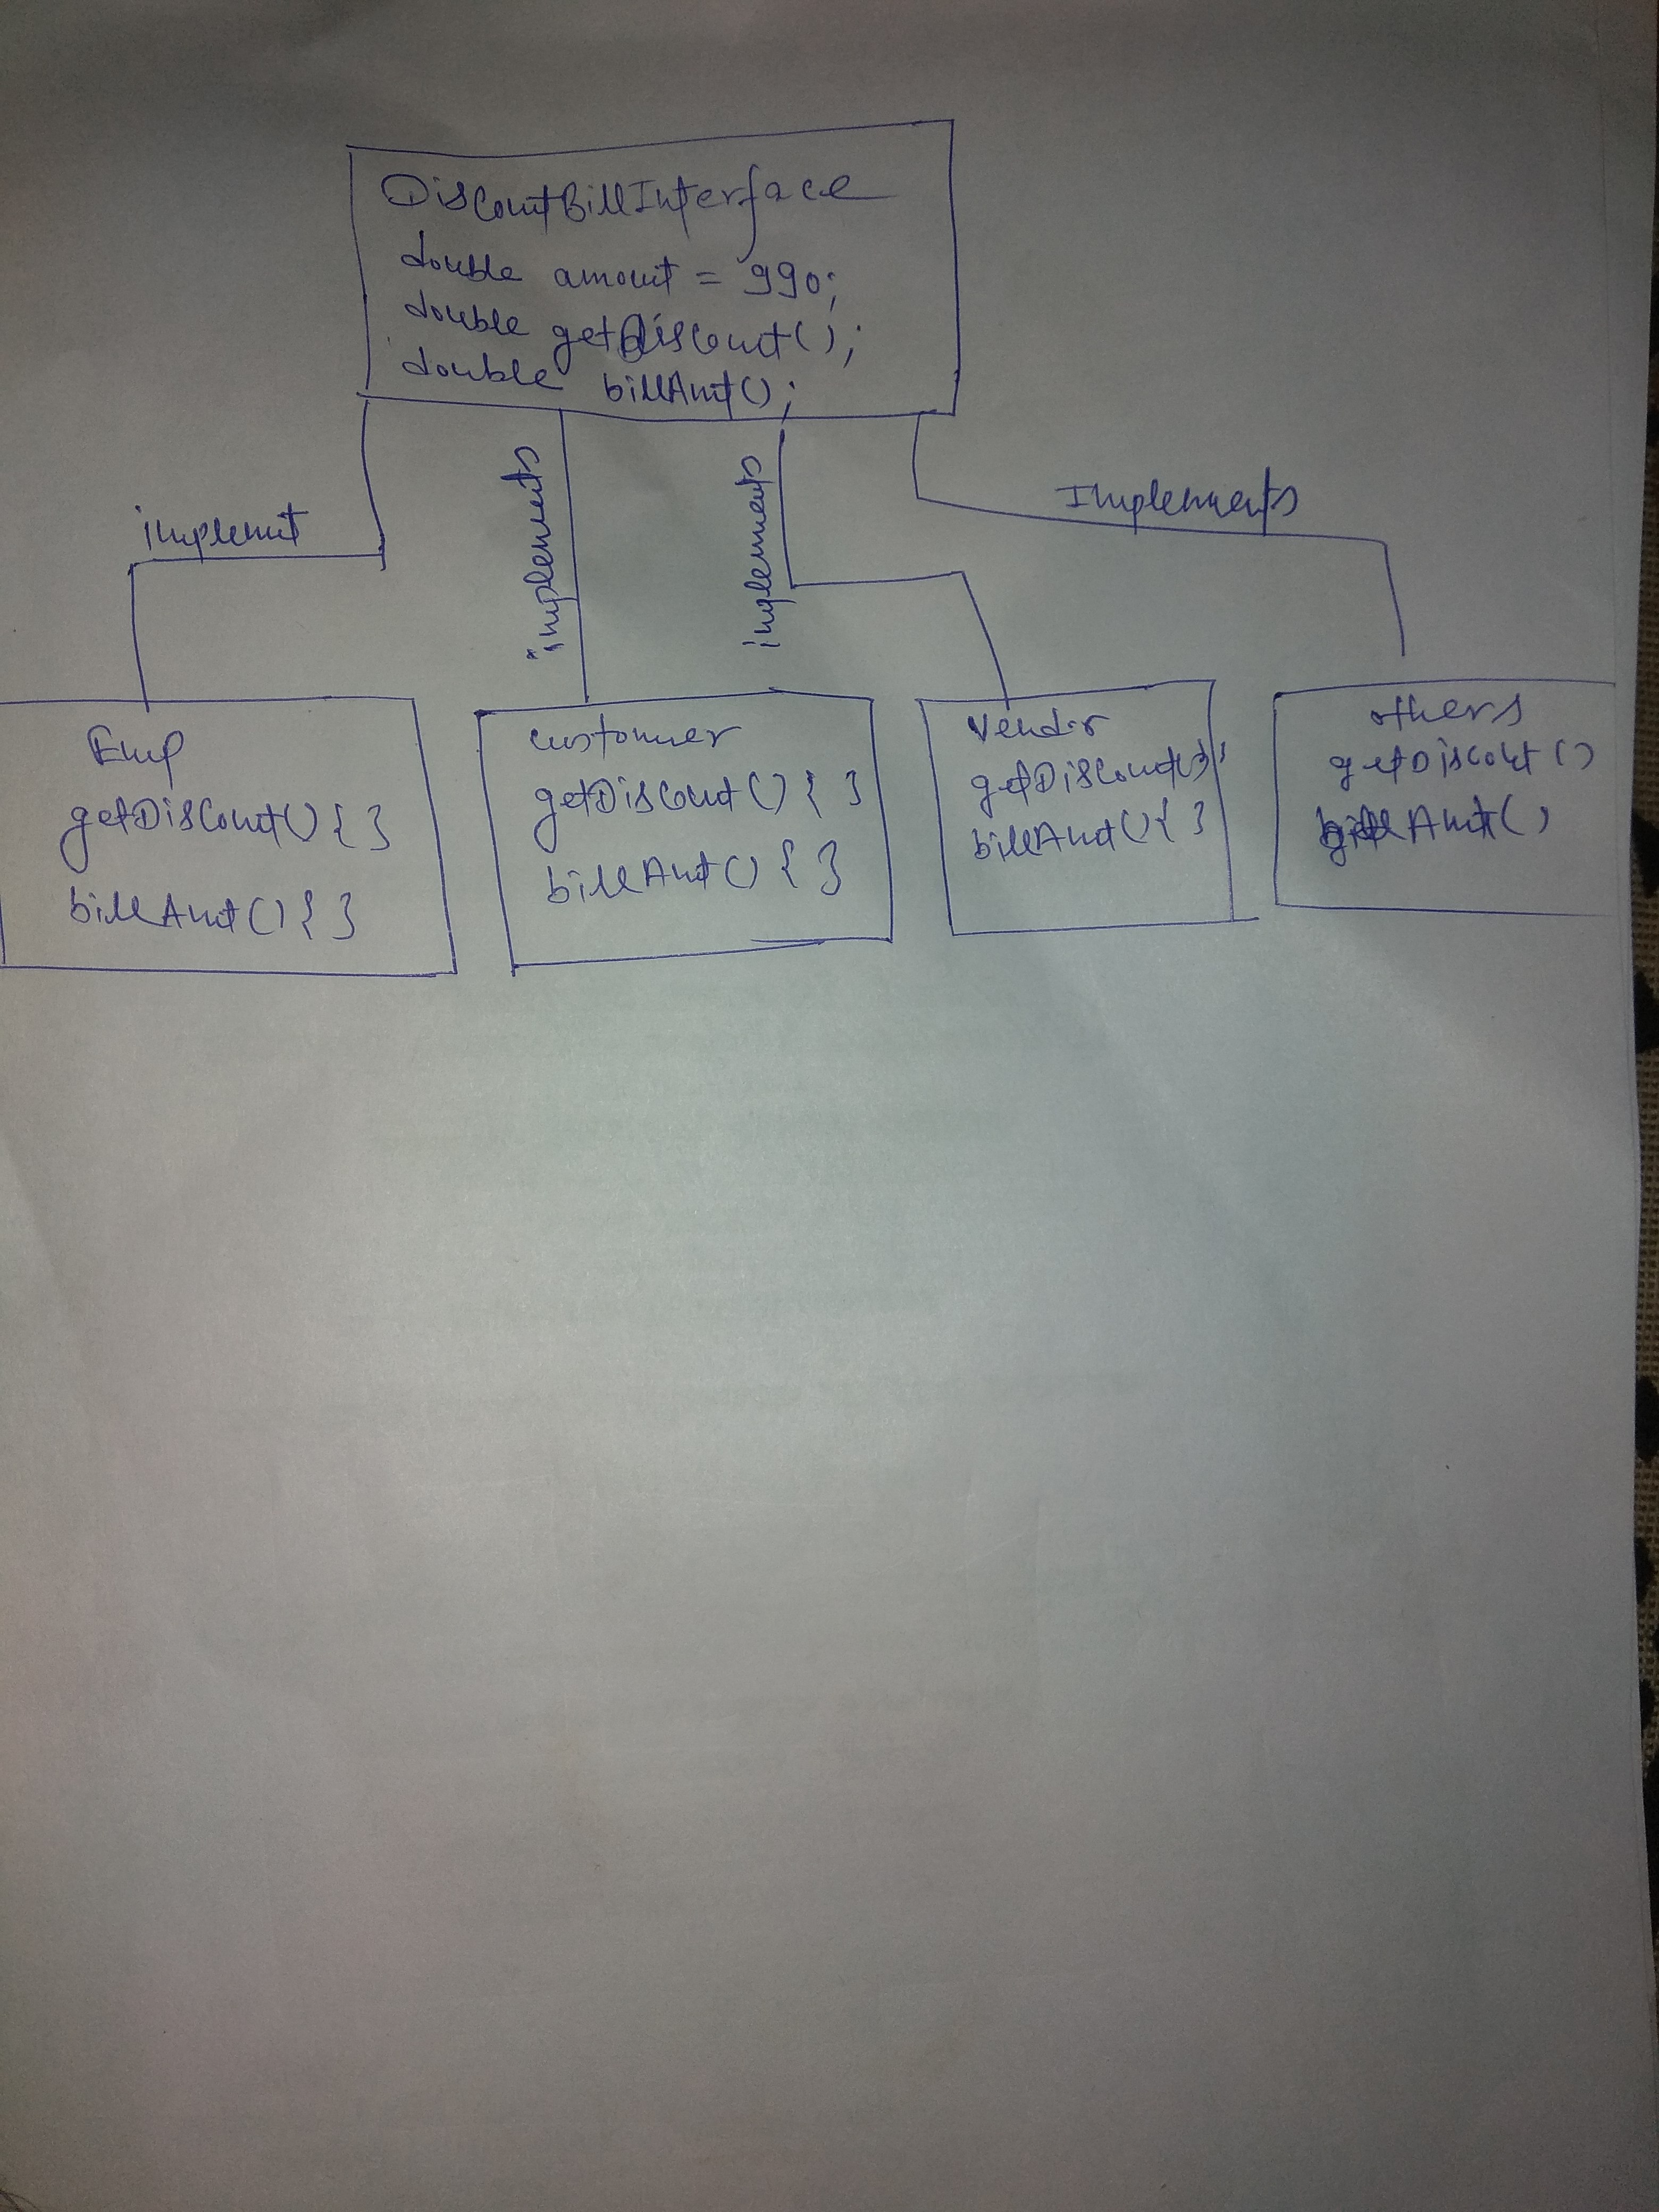 DiscountBillInterface
double amount = 990;
double getDiscount();
double billAmt();
implement
implements
implements
Implements
Emp
getDiscount() { }
billAmt() { }
customer
getDiscount() { }
billAmt() { }
Vendor
getDiscount()
billAmt() { }
others
getDiscount()
billAmt()